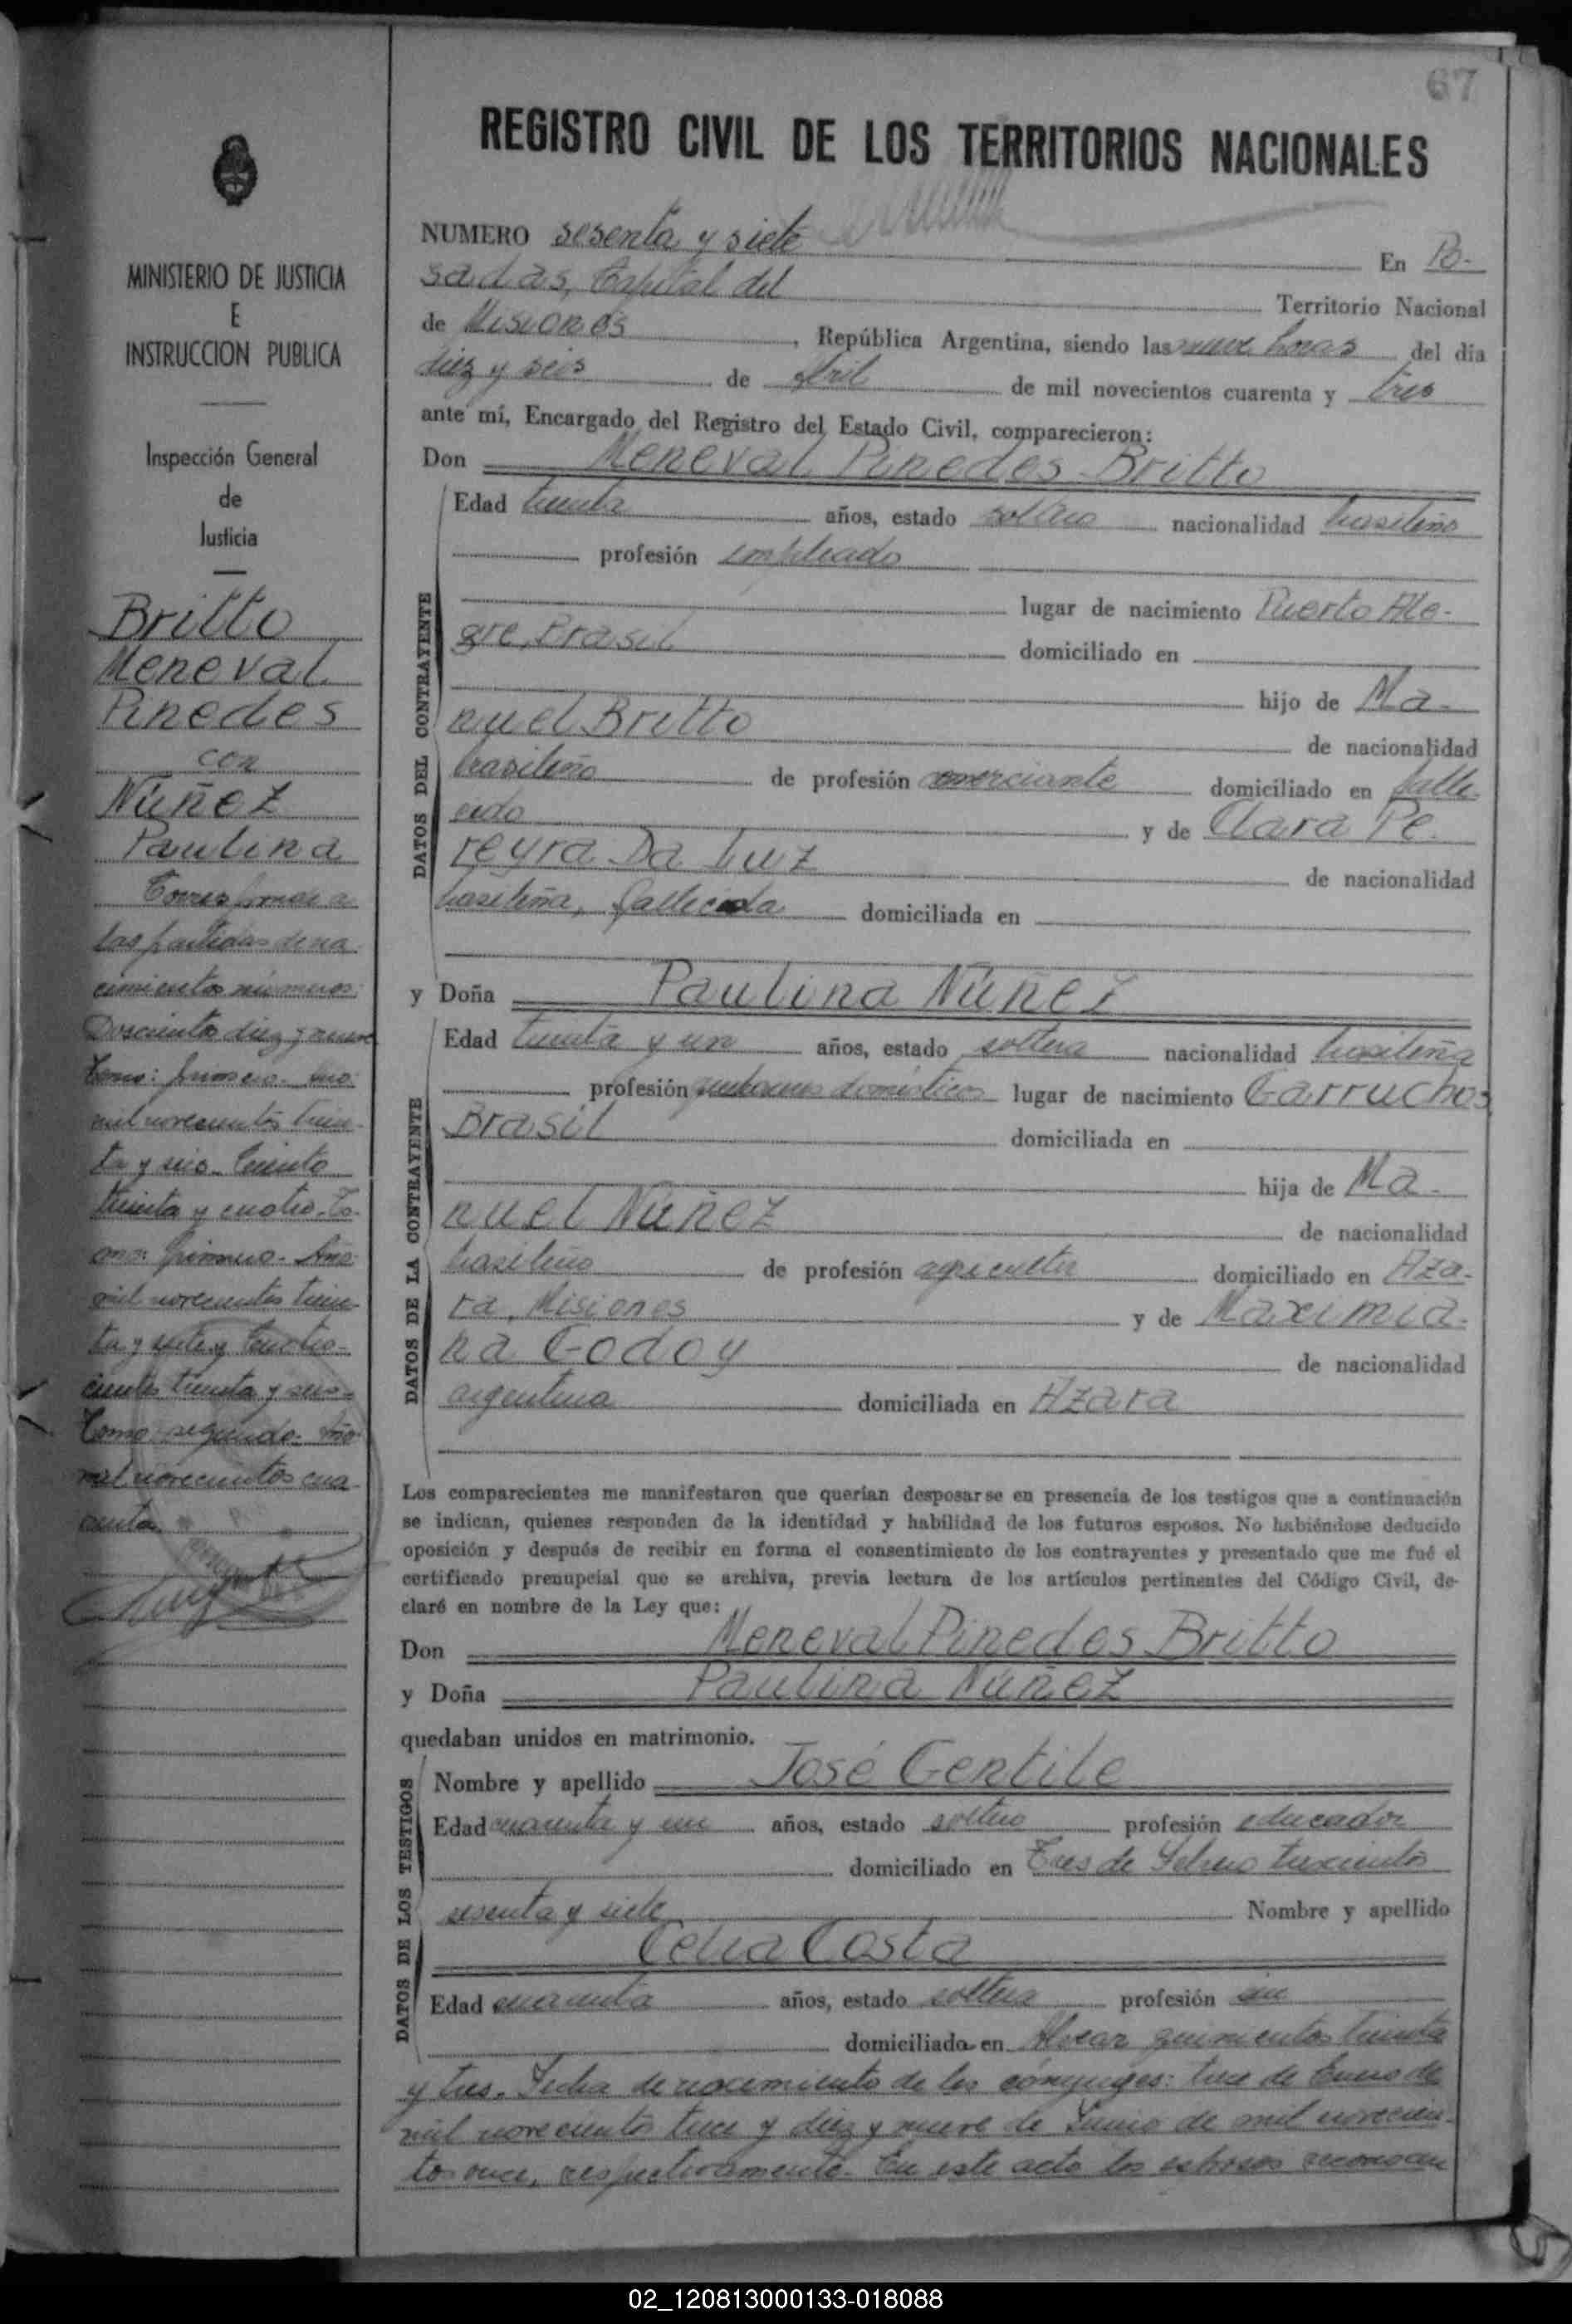 67
REGISTRO CIVIL DE LOS TERRITORIOS NACIONALES
NUMERO sesenta y siete En Po-
sadas, Capital del Territorio Nacional
de Misiones, República Argentina, siendo las nueve horas del dia
diez y seis de Abril de mil novecientos cuarenta y tres
ante mí, Encargado del Registro del Estado Civil, comparecieron:
Don Meneval Pinedes Britto
Edad treinta años, estado soltero nacionalidad brasileño
profesión empleado
lugar de nacimiento Puerto Ale-
gre, Brasil domiciliado en
hijo de Ma-
nuel Britto de nacionalidad
brasileño de profesión comerciante domiciliado en falle-
cido y de Clara Pe-
reyra Da Luz de nacionalidad
brasileña, fallecida domiciliada en
y Doña Paulina Núñez
Edad treinta y un años, estado soltera nacionalidad brasileña
profesión quehaceres domésticos lugar de nacimiento Garruchos,
Brasil domiciliada en
hija de Ma-
nuel Núñez de nacionalidad
brasileño de profesión agricultor domiciliado en Aza-
ra, Misiones y de Maximia-
na Godoy de nacionalidad
argentina domiciliada en Azara
DATOS DEL CONTRAYENTE
DATOS DE LA CONTRAYENTE
Los comparecientes me manifestaron que querían desposarse en presencia de los testigos que a continuación
se indican, quienes responden de la identidad y habilidad de los futuros esposos. No habiéndose deducido
oposición y después de recibir en forma el consentimiento de los contrayentes y presentado que me fué el
certificado prenupcial que se archiva, previa lectura de los artículos pertinentes del Código Civil, de-
claré en nombre de la Ley que:
Don Meneval Pinedes Britto
y Doña Paulina Núñez
quedaban unidos en matrimonio.
Nombre y apellido José Gentile
Edad cuarenta y un años, estado soltero profesión educador
domiciliado en Tres de Febrero trescientos
sesenta y siete Nombre y apellido
Celia Costa
Edad cuarenta años, estado soltera profesión sin
domiciliado en Alvear quinientos treinta
y tres. Fecha de nacimiento de los cónyuges: trece de Enero de
mil novecientos trece y diez y nueve de Junio de mil novecien-
tos once, respectivamente. En este acto los esposos reconocen
DATOS DE LOS TESTIGOS
MINISTERIO DE JUSTICIA
E
INSTRUCCION PUBLICA
Inspección General
de
Justicia
Britto
Meneval
Pinedes
con
Núñez
Paulina
Corresponde a
las partidas de na-
cimientos números:
Doscientos diez y nueve
Tomo: primero. Año:
mil novecientos trein-
ta y seis. Ciento
treinta y cuatro. To-
mo: primero. Año:
mil novecientos trein-
ta y siete y Cuatro-
cientos treinta y seis.
Tomo: segundo. Año:
mil novecientos cua-
renta
02_120813000133-018088